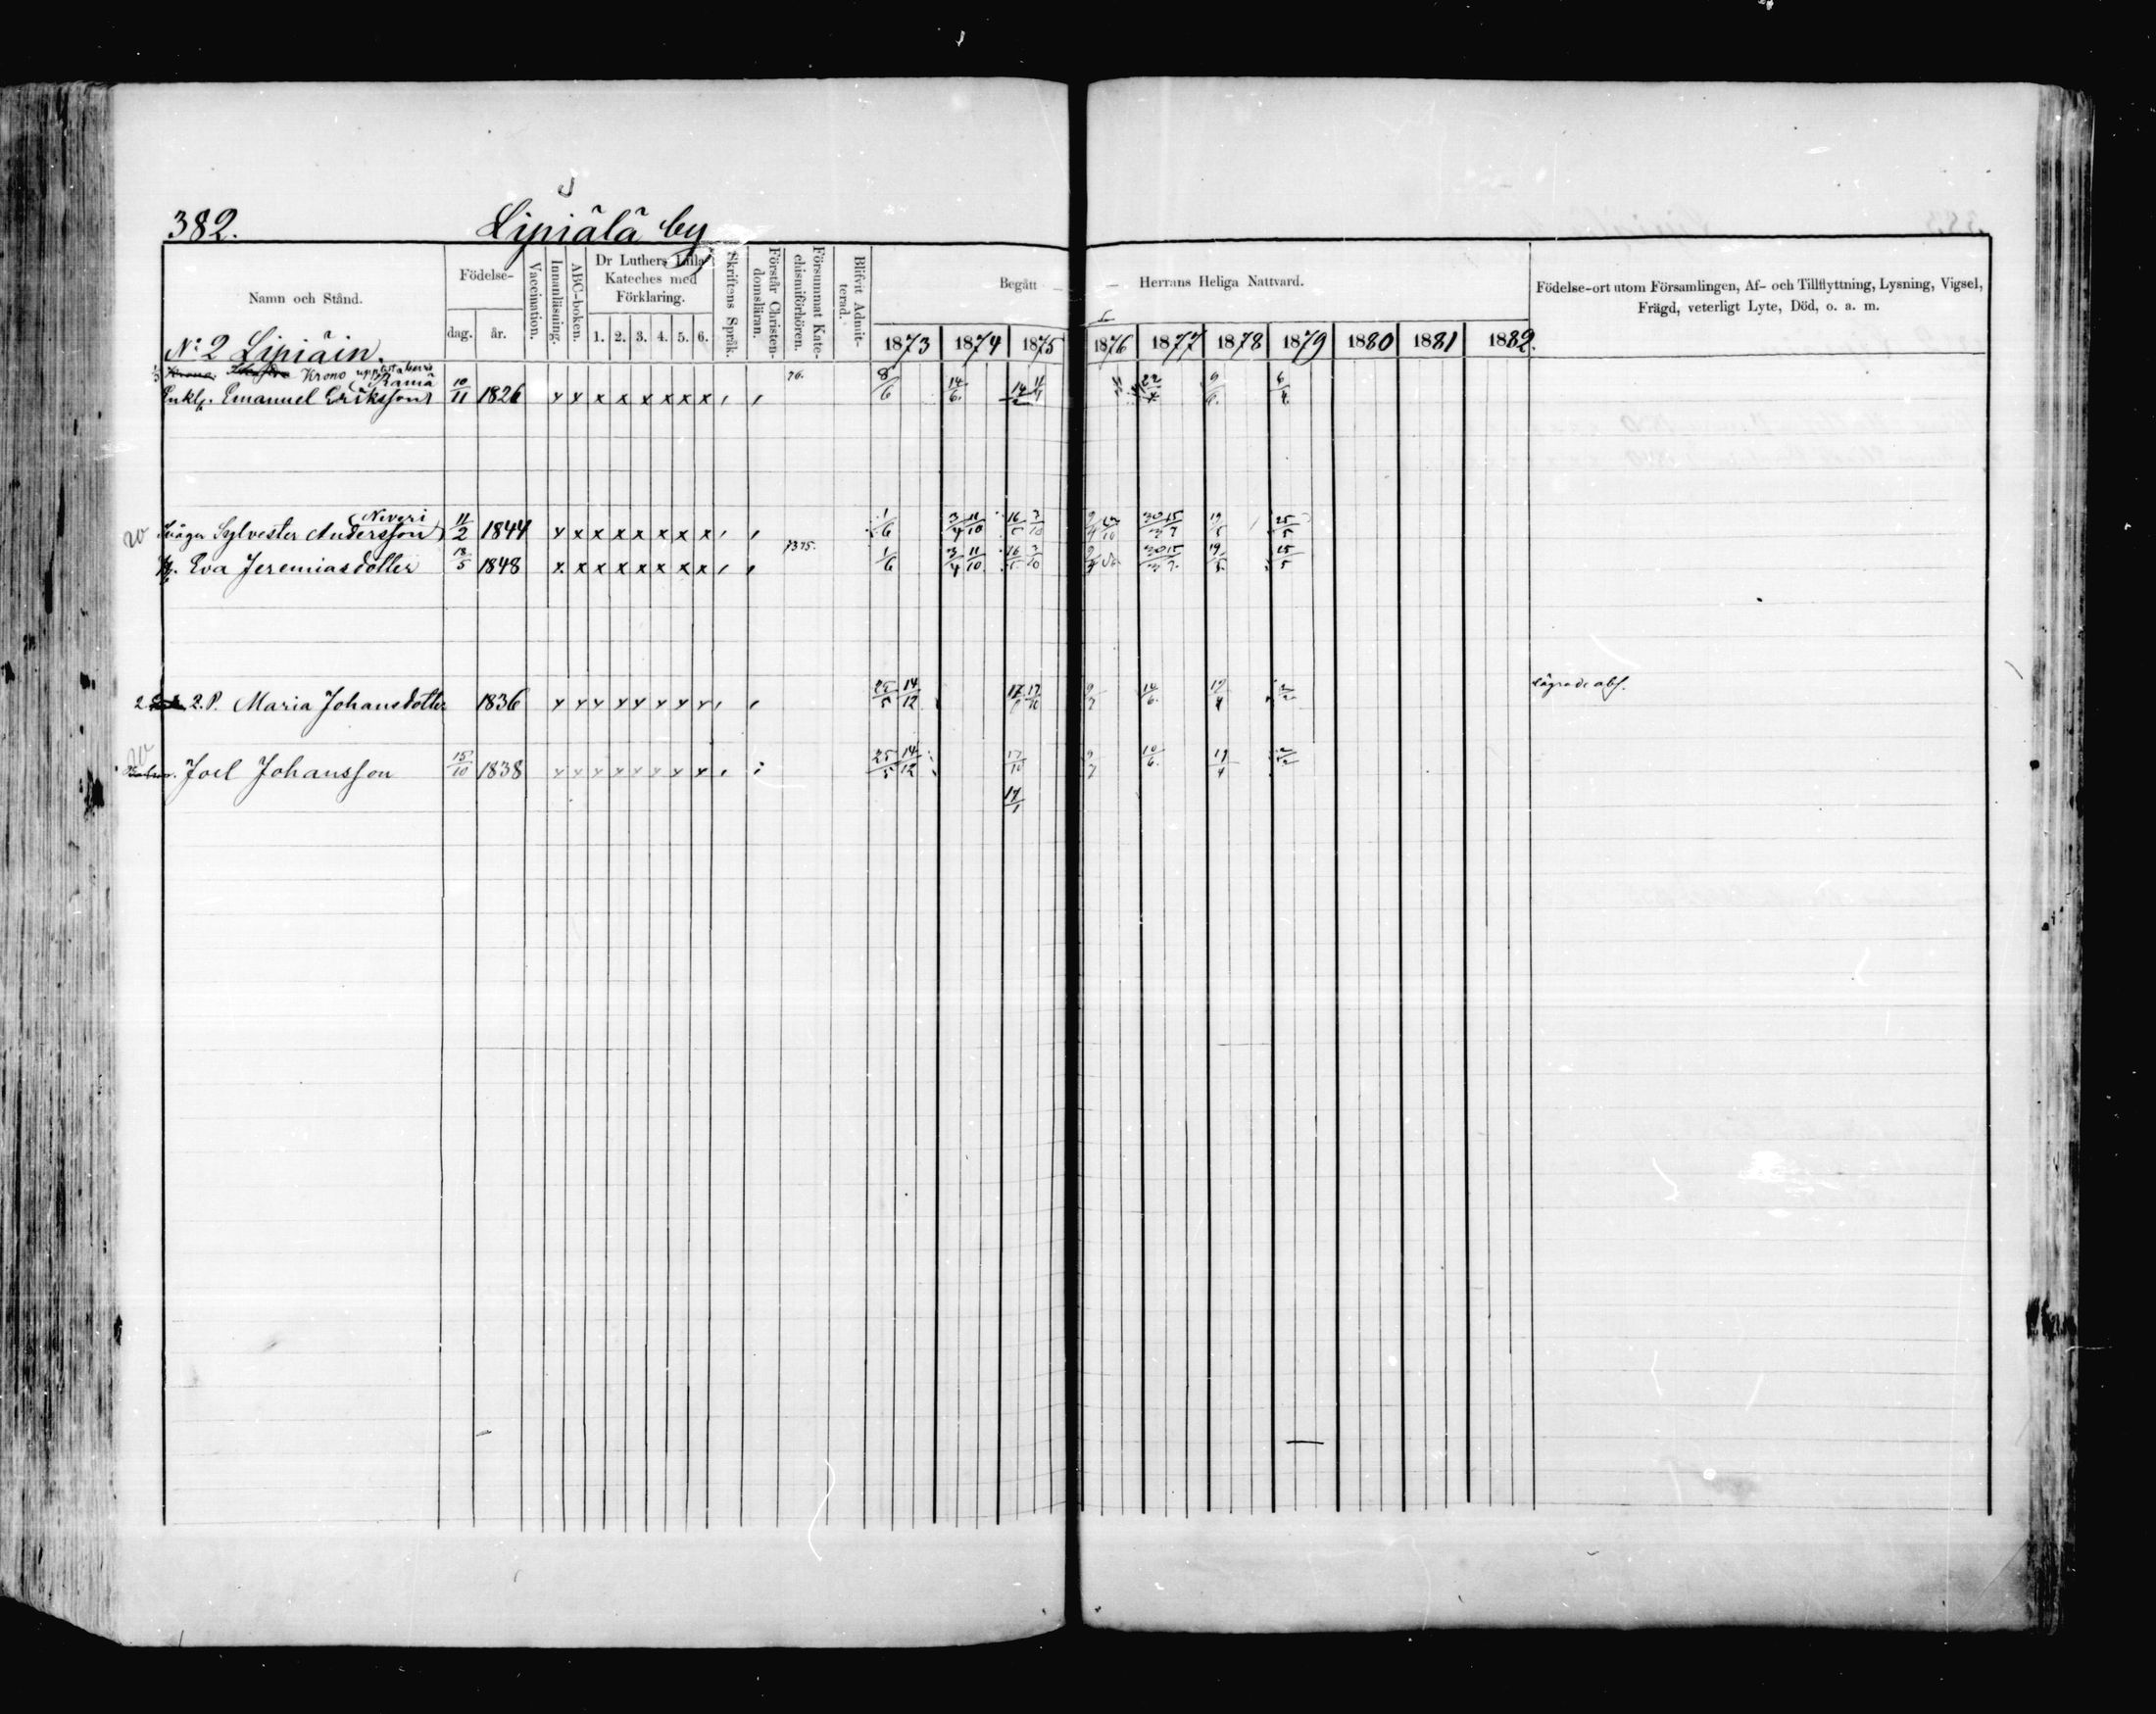 382. Lipiälä by
Namn och Stånd.
Födelse-
dag. år.
Vaccination.
Innanläsning.
ABC-boken.
Dr Luthers Lilla
Kateches med
Förklaring.
1. 2. 3. 4. 5. 6.
Skriftens Språk.
Förstår Christen-
domsläran.
Försummat Kate-
chismiförhören.
Blifvit Admit-
terad.
Begått Herrans Heliga Nattvard.
1873 1874 1875 1876 1877 1878 1879 1880 1881 1882.
Födelse-ort utom Församlingen, Af- och Tillflyttning, Lysning, Vigsel,
Frägd, veterligt Lyte, Död, o. a. m.
No 2 Lipiäin.
Krono
Rämä
Enkl. Emanuel Eriksson 10/11 1826 x x x x x x x x 76. 8/6 14/6
Neveri
Svåger Sylvester Andersson 11/2 1844 x x x x x x x x 1/6 3/4 11/10 16/5 3/10 30/3 15/7 19/5 25/5
H. Eva Jeremiasdotter 13/5 1848 x x x x x x x x 7375. 1/6 3/4 11/10 16/5 3/10 30/3 15/7 19/5 25/5
2. P. Maria Johansdotter 1836 x x x x x x x x 25/5 14/12 17/10 14/6 19/4 2/2 lägrade abs.
Joel Johansson 15/10 1838 x x x x x x x x 25/5 14/12 17/10 9/7 10/6 19/4 2/2
17/1